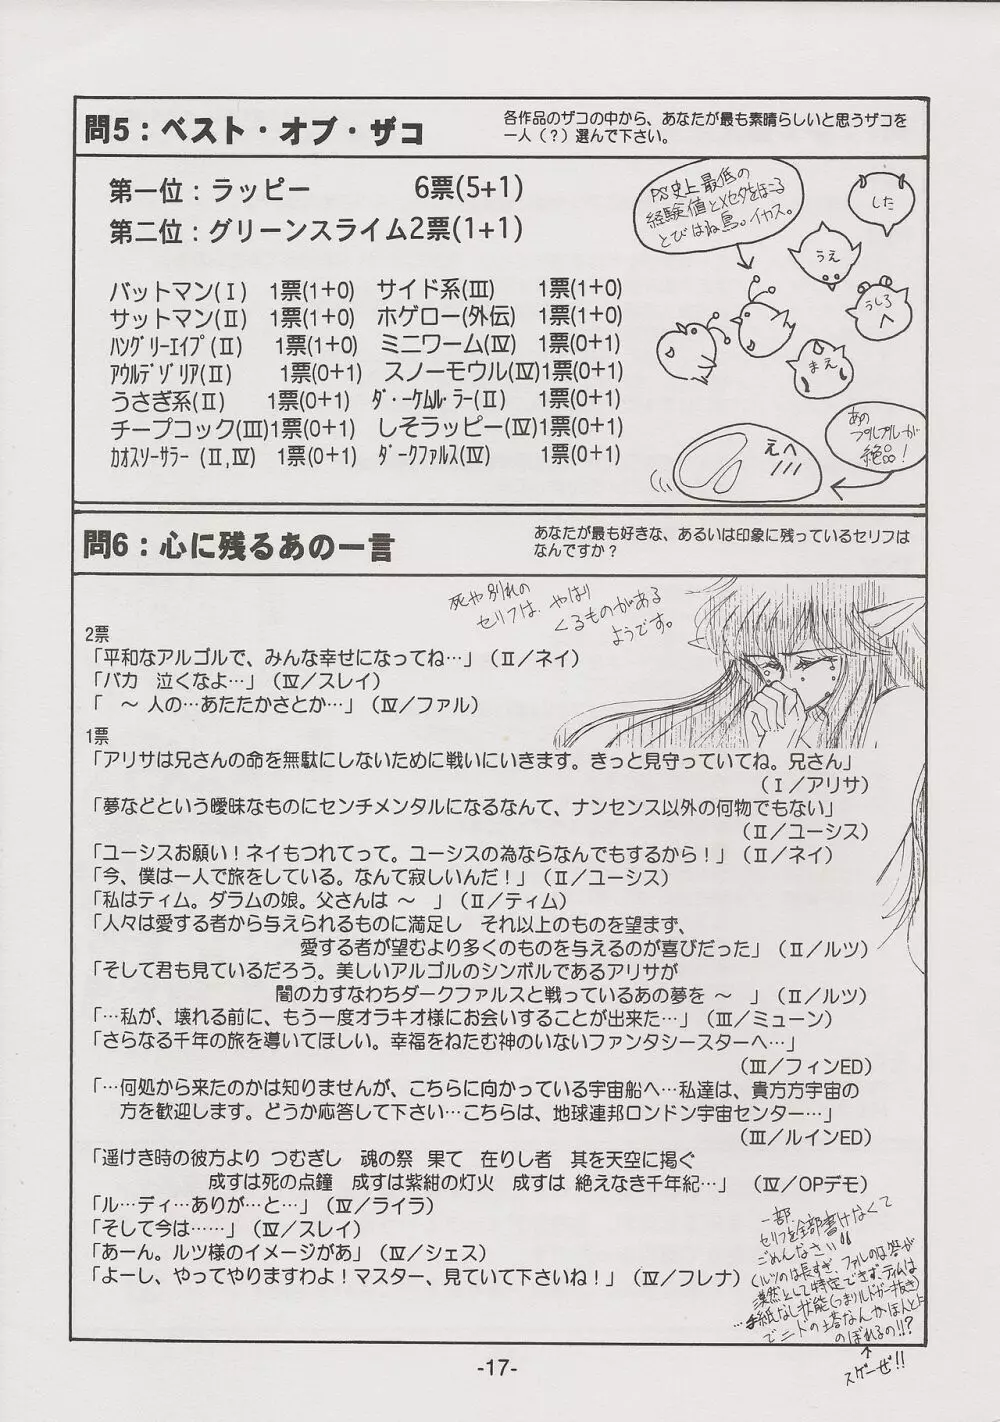 問5：ベスト・オブ・ザコ
各作品のザコの中から、あなたが最も素晴らしいと思うザコを
一人（？）選んで下さい。
第一位：ラッピー　6票(5+1)
第二位：グリーンスライム2票(1+1)
バットマン(Ⅰ)　1票(1+0)　サイド系(Ⅲ)　1票(1+0)
サットマン(Ⅱ)　1票(1+0)　ホゲロー(外伝)　1票(1+0)
ﾊﾝｸﾞﾘｰｴｲﾌﾟ(Ⅱ)　1票(1+0)　ミニワーム(Ⅳ)　1票(0+1)
ｱｳﾙﾃﾞｿﾞﾘｱ(Ⅱ)　1票(0+1)　スノーモウル(Ⅳ)1票(0+1)
うさぎ系(Ⅱ)　1票(0+1)　ﾀﾞ･ｰｹﾑﾙ･ﾗｰ(Ⅱ)　1票(0+1)
チープコック(Ⅲ)1票(0+1)　しそラッピー(Ⅳ)1票(0+1)
ｶｵｽｿｰｻﾗｰ (Ⅱ,Ⅳ)　1票(0+1)　ﾀﾞｰｸﾌｧﾙｽ(Ⅳ)　1票(0+1)
PS史上最低の
経験値とメセタをほこる
とびはね鳥。イカス。
した
うえ
うしろ
へ
まえ
あの
プルプルが
絶品！
えへ
問6：心に残るあの一言
あなたが最も好きな、あるいは印象に残っているセリフは
なんですか？
死や別れの
セリフは、やはり
くるものがある
ようです。
2票
「平和なアルゴルで、みんな幸せになってね…」（Ⅱ／ネイ）
「バカ　泣くなよ…」（Ⅳ／スレイ）
「　～ 人の…あたたかさとか…」（Ⅳ／ファル）
1票
「アリサは兄さんの命を無駄にしないために戦いにいきます。きっと見守っていてね。兄さん」
（Ⅰ／アリサ）
「夢などという曖昧なものにセンチメンタルになるなんて、ナンセンス以外の何物でもない」
（Ⅱ／ユーシス）
「ユーシスお願い！ネイもつれてって。ユーシスの為ならなんでもするから！」（Ⅱ／ネイ）
「今、僕は一人で旅をしている。なんて寂しいんだ！」（Ⅱ／ユーシス）
「私はティム。ダラムの娘。父さんは ～　」（Ⅱ／ティム）
「人々は愛する者から与えられるものに満足し　それ以上のものを望まず、
愛する者が望むより多くのものを与えるのが喜びだった」（Ⅱ／ルツ）
「そして君も見ているだろう。美しいアルゴルのシンボルであるアリサが
闇の力すなわちダークファルスと戦っているあの夢を ～　」（Ⅱ／ルツ）
「…私が、壊れる前に、もう一度オラキオ様にお会いすることが出来た…」（Ⅲ／ミューン）
「さらなる千年の旅を導いてほしい。幸福をねたむ神のいないファンタシースターへ…」
（Ⅲ／フィンED）
「…何処から来たのかは知りませんが、こちらに向かっている宇宙船へ…私達は、貴方方宇宙の
方を歓迎します。どうか応答して下さい…こちらは、地球連邦ロンドン宇宙センター…」
（Ⅲ／ルインED）
「遥けき時の彼方より つむぎし　魂の祭 果て　在りし者　其を天空に掲ぐ
成すは死の点鐘　成すは紫紺の灯火　成すは 絶えなき千年紀…」　（Ⅳ／OPデモ）
「ル…ディ…ありが…と…」（Ⅳ／ライラ）
「そして今は……」（Ⅳ／スレイ）
「あーん。ルツ様のイメージがあ」（Ⅳ／シェス）
「よーし、やってやりますわよ！マスター、見ていて下さいね！」（Ⅳ／フレナ）
一部、
セリフを全部書けなくて
ごめんなさい!!
（ルツのは長すぎ、ファルのは答が
漠然として特定できず、ティムは
…手紙なし状態（つまりルドガー抜き）
でニドの塔なんかほんとに
のぼれるの!!?
スゲーぜ!!
-17-